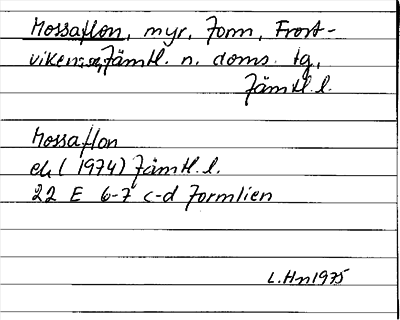 Mossaflon, myr, Jorm, Frost-
vikens sn, Jämtl. n. doms. tg,
Jämtl. l.
Mossaflon
ek (1974) Jämtl. l.
22 E 6-7 c-d Jormlien
L. Hn 1975